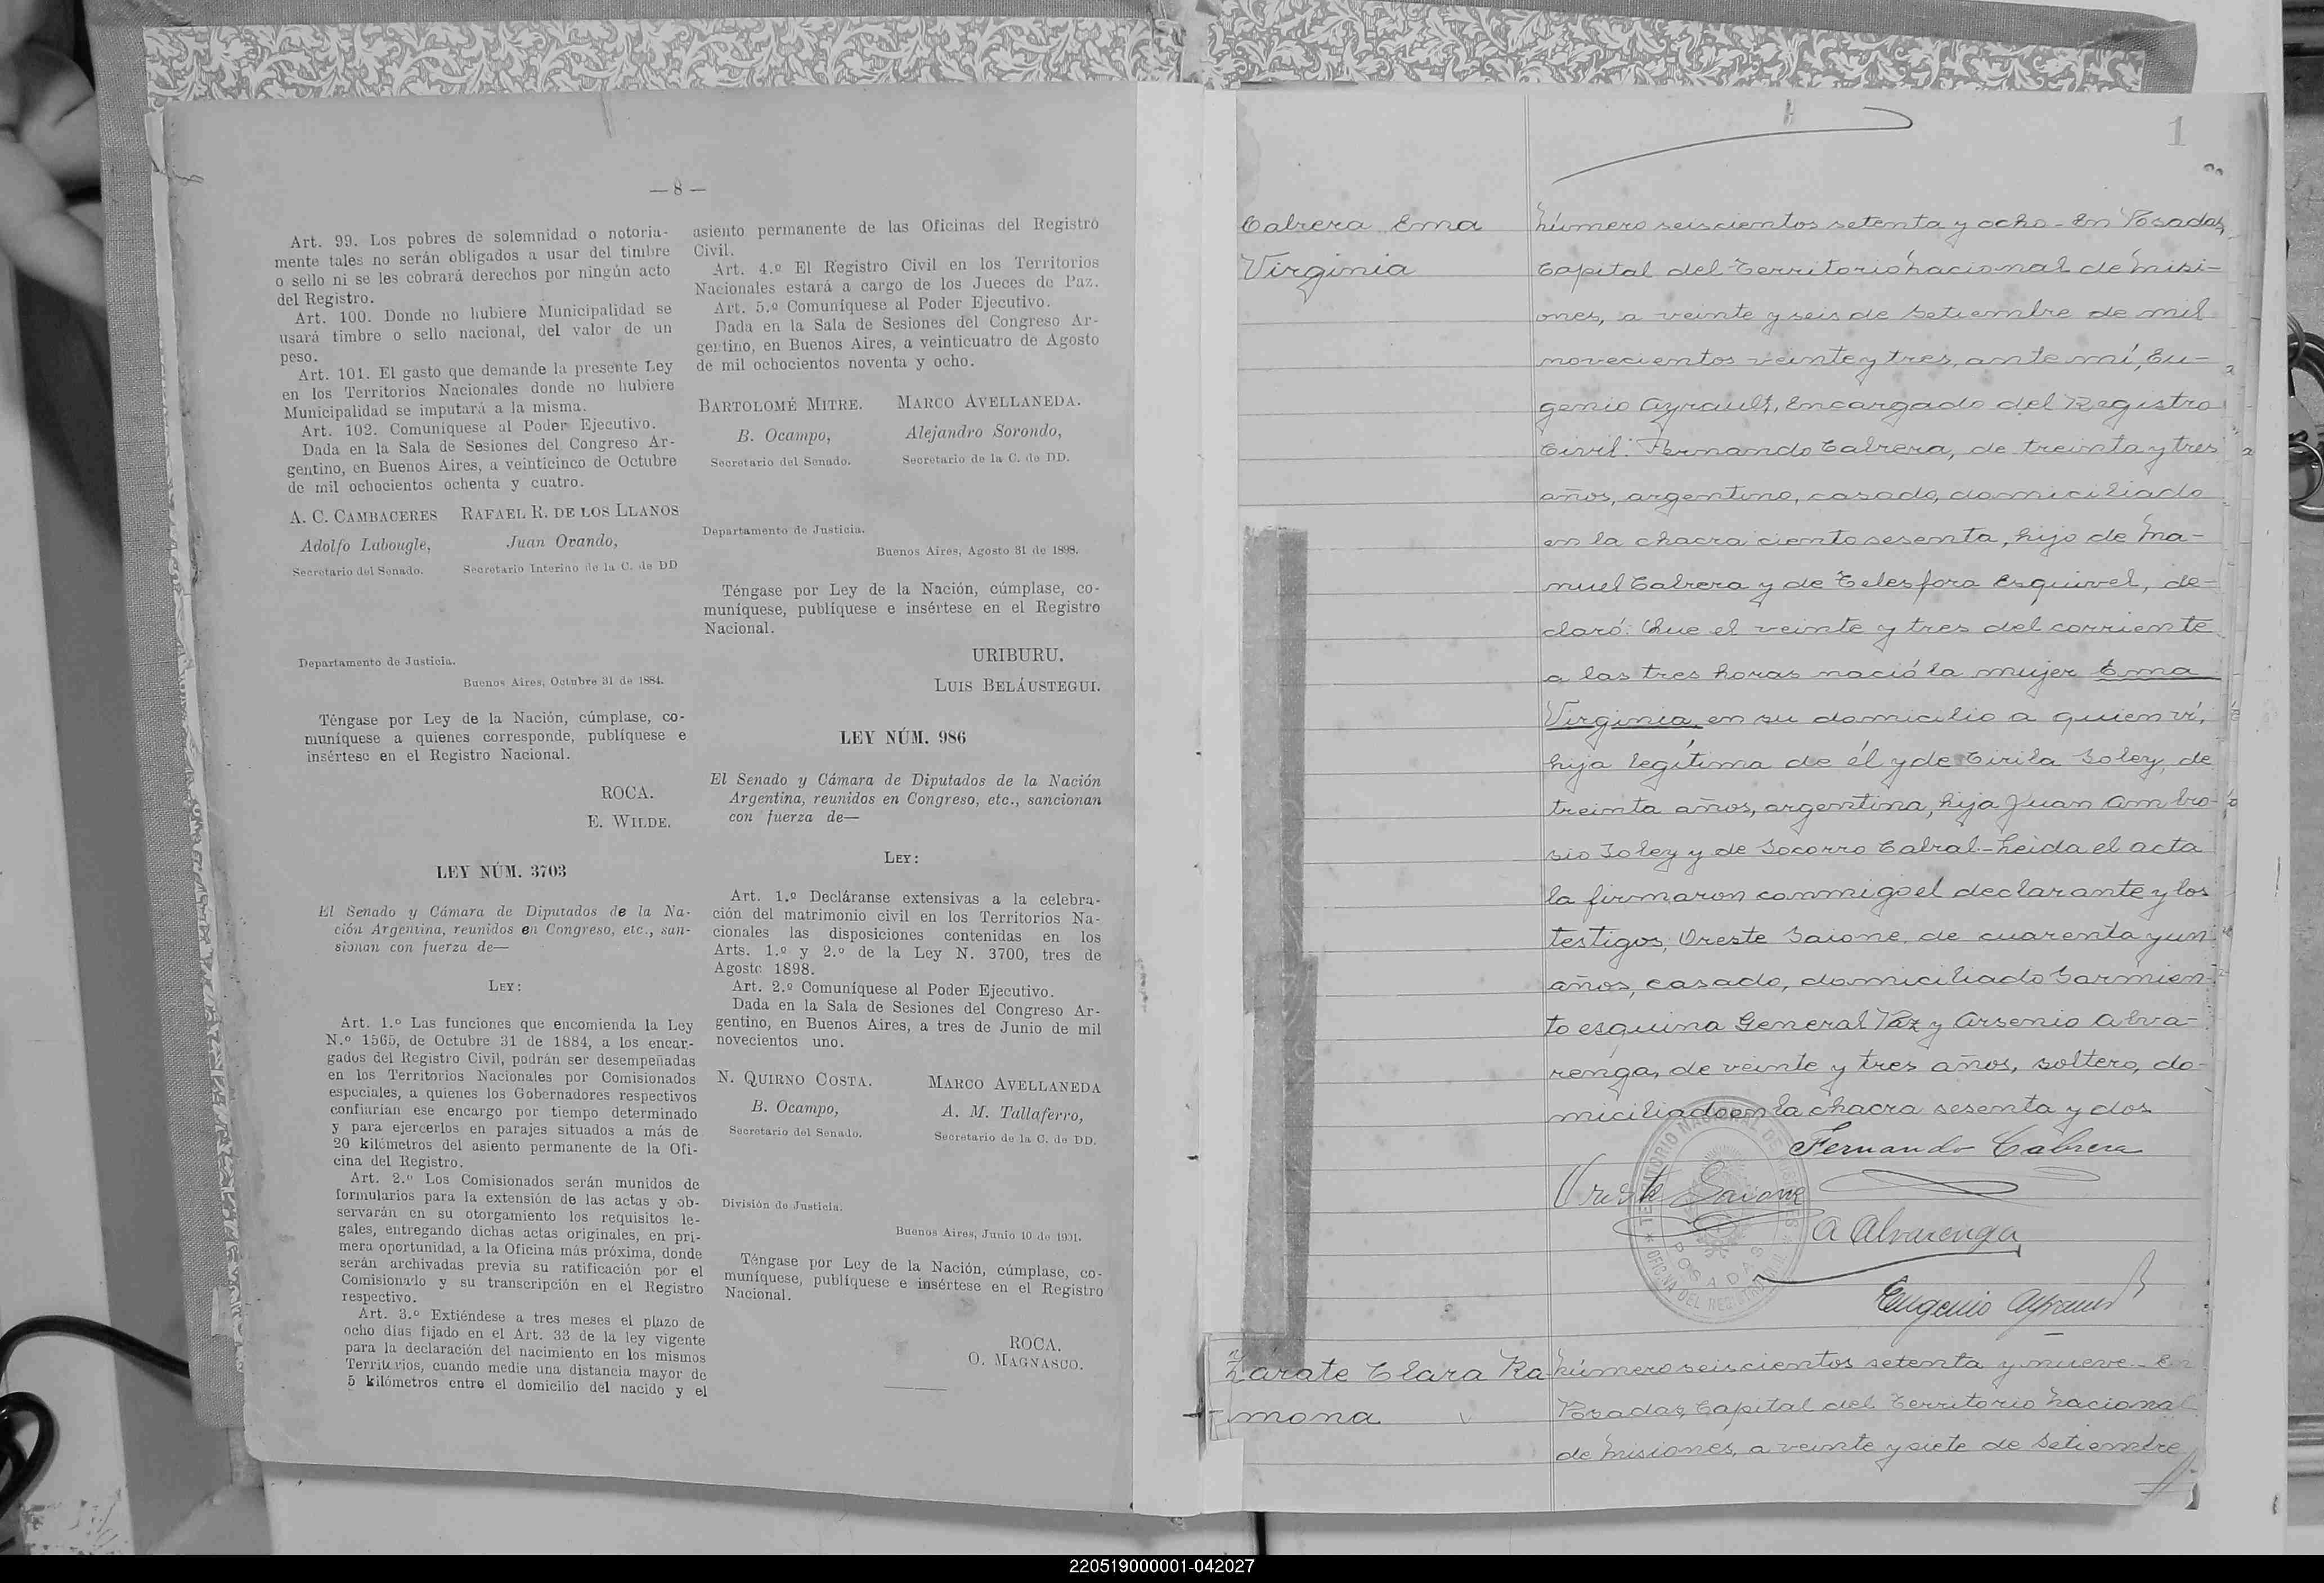 — 8 —
Art. 99. Los pobres de solemnidad o notoria-
mente tales no serán obligados a usar del timbre
o sello ni se les cobrará derechos por ningún acto
del Registro.
Art. 100. Donde no hubiere Municipalidad se
usará timbre o sello nacional, del valor de un
peso.
Art. 101. El gasto que demande la presente Ley
en los Territorios Nacionales donde no hubiere
Municipalidad se imputará a la misma.
Art. 102. Comuníquese al Poder Ejecutivo.
Dada en la Sala de Sesiones del Congreso Ar-
gentino, en Buenos Aires, a veinticinco de Octubre
de mil ochocientos ochenta y cuatro.
A. C. CAMBACERES RAFAEL R. DE LOS LLANOS
Adolfo Labougle, Juan Ovando,
Secretario del Senado. Secretario Interino de la C. de DD
Departamento de Justicia.
Buenos Aires, Octubre 31 de 1884.
Téngase por Ley de la Nación, cúmplase, co-
muníquese a quienes corresponde, publíquese e
insértese en el Registro Nacional.
ROCA.
E. WILDE.
LEY NÚM. 3703
El Senado y Cámara de Diputados de la Na-
ción Argentina, reunidos en Congreso, etc., san-
sionan con fuerza de—
LEY:
Art. 1.º Las funciones que encomienda la Ley
N.º 1565, de Octubre 31 de 1884, a los encar-
gados del Registro Civil, podrán ser desempeñadas
en los Territorios Nacionales por Comisionados
especiales, a quienes los Gobernadores respectivos
confiarían ese encargo por tiempo determinado
y para ejercerlos en parajes situados a más de
20 kilómetros del asiento permanente de la Ofi-
cina del Registro.
Art. 2.º Los Comisionados serán munidos de
formularios para la extensión de las actas y ob-
servarán en su otorgamiento los requisitos le-
gales, entregando dichas actas originales, en pri-
mera oportunidad, a la Oficina más próxima, donde
serán archivadas previa su ratificación por el
Comisionado y su transcripción en el Registro
respectivo.
Art. 3.º Extiéndese a tres meses el plazo de
ocho días fijado en el Art. 33 de la ley vigente
para la declaración del nacimiento en los mismos
Territorios, cuando medie una distancia mayor de
5 kilómetros entre el domicilio del nacido y el
asiento permanente de las Oficinas del Registro
Civil.
Art. 4.º El Registro Civil en los Territorios
Nacionales estará a cargo de los Jueces de Paz.
Art. 5.º Comuníquese al Poder Ejecutivo.
Dada en la Sala de Sesiones del Congreso Ar-
gentino, en Buenos Aires, a veinticuatro de Agosto
de mil ochocientos noventa y ocho.
BARTOLOMÉ MITRE. MARCO AVELLANEDA.
B. Ocampo, Alejandro Sorondo,
Secretario del Senado. Secretario de la C. de DD.
Departamento de Justicia.
Buenos Aires, Agosto 31 de 1898.
Téngase por Ley de la Nación, cúmplase, co-
muníquese, publíquese e insértese en el Registro
Nacional.
URIBURU.
LUIS BELÁUSTEGUI.
LEY NÚM. 986
El Senado y Cámara de Diputados de la Nación
Argentina, reunidos en Congreso, etc., sancionan
con fuerza de—
LEY:
Art. 1.º Decláranse extensivas a la celebra-
ción del matrimonio civil en los Territorios Na-
cionales las disposiciones contenidas en los
Arts. 1.º y 2.º de la Ley N. 3700, tres de
Agosto 1898.
Art. 2.º Comuníquese al Poder Ejecutivo.
Dada en la Sala de Sesiones del Congreso Ar-
gentino, en Buenos Aires, a tres de Junio de mil
novecientos uno.
N. QUIRNO COSTA. MARCO AVELLANEDA
B. Ocampo, A. M. Tallaferro,
Secretario del Senado. Secretario de la C. de DD.
División de Justicia.
Buenos Aires, Junio 10 de 1901.
Téngase por Ley de la Nación, cúmplase, co-
muníquese, publíquese e insértese en el Registro
Nacional.
ROCA.
O. MAGNASCO.
1
Cabrera Ema
Virginia
Número seiscientos setenta y ocho - En Posadas,
Capital del Territorio Nacional de Misi-
ones, a veinte y seis de Setiembre de mil
novecientos veinte y tres, ante mí, Eu-
genio Ayrault, Encargado del Registro
Civil: Fernando Cabrera, de treinta y tres
años, argentino, casado, domiciliado
en la chacra ciento sesenta, hijo de Ma-
nuel Cabrera y de Telesfora Esquivel, de-
claró: Que el veinte y tres del corriente
a las tres horas nació la mujer Ema
Virginia, en su domicilio a quien ví,
hija legítima de él y de Cirila Soley, de
treinta años, argentina, hija Juan Ambro-
sio Soley y de Socorro Cabral - Leida el acta
la firmaron conmigo el declarante y los
testigos, Oreste Saione, de cuarenta y un
años, casado, domiciliado Sarmien-
to esquina General Paz y Arsenio Alva-
renga, de veinte y tres años, soltero, do-
miciliado en la chacra sesenta y dos
Fernando Cabrera
Oreste Saione
A Alvarenga
TERRITORIO NACIONAL DE MISIONES
OFICINA DEL REGISTRO CIVIL
POSADAS
Eugenio Ayrault
Zárate Clara Ra
mona
Número seiscientos setenta y nueve - En
Posadas, Capital del Territorio Nacional
de Misiones, a veinte y siete de Setiembre
220519000001-042027